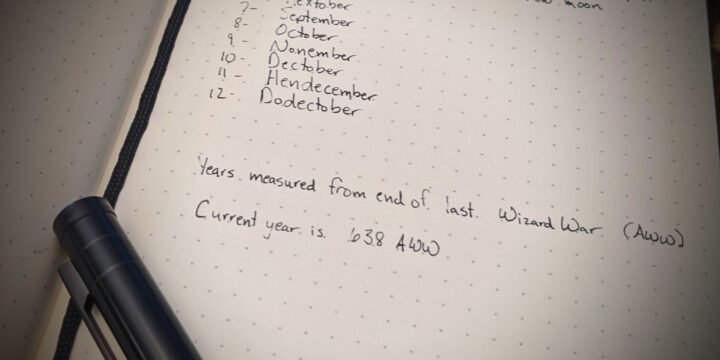 moon
Sextober
7- September
8- October
9- Nonember
10- Dectober
11- Hendecember
12- Dodectober
Years measured from end of last Wizard War. (AWW)
Current year is 638 AWW